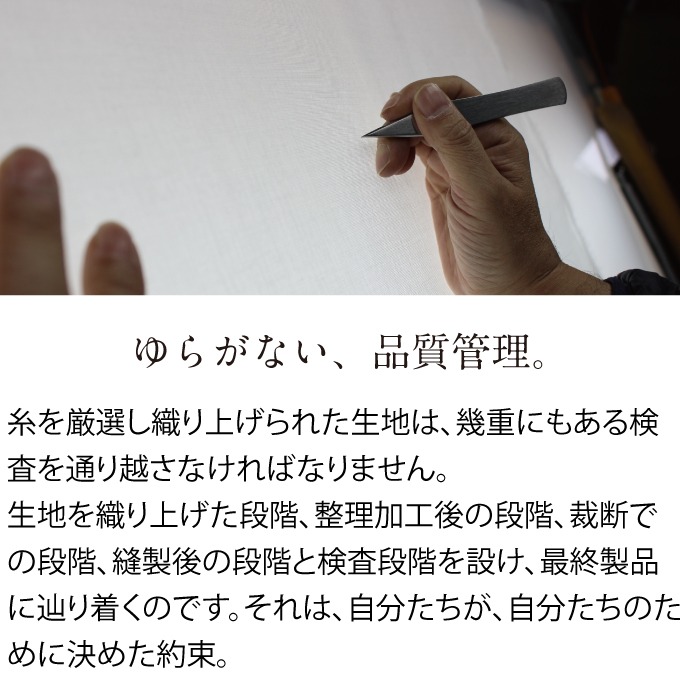 ゆらがない、品質管理。
糸を厳選し織り上げられた生地は、幾重にもある検
査を通り越さなければなりません。
生地を織り上げた段階、整理加工後の段階、裁断で
の段階、縫製後の段階と検査段階を設け、最終製品
に辿り着くのです。それは、自分たちが、自分たちのた
めに決めた約束。